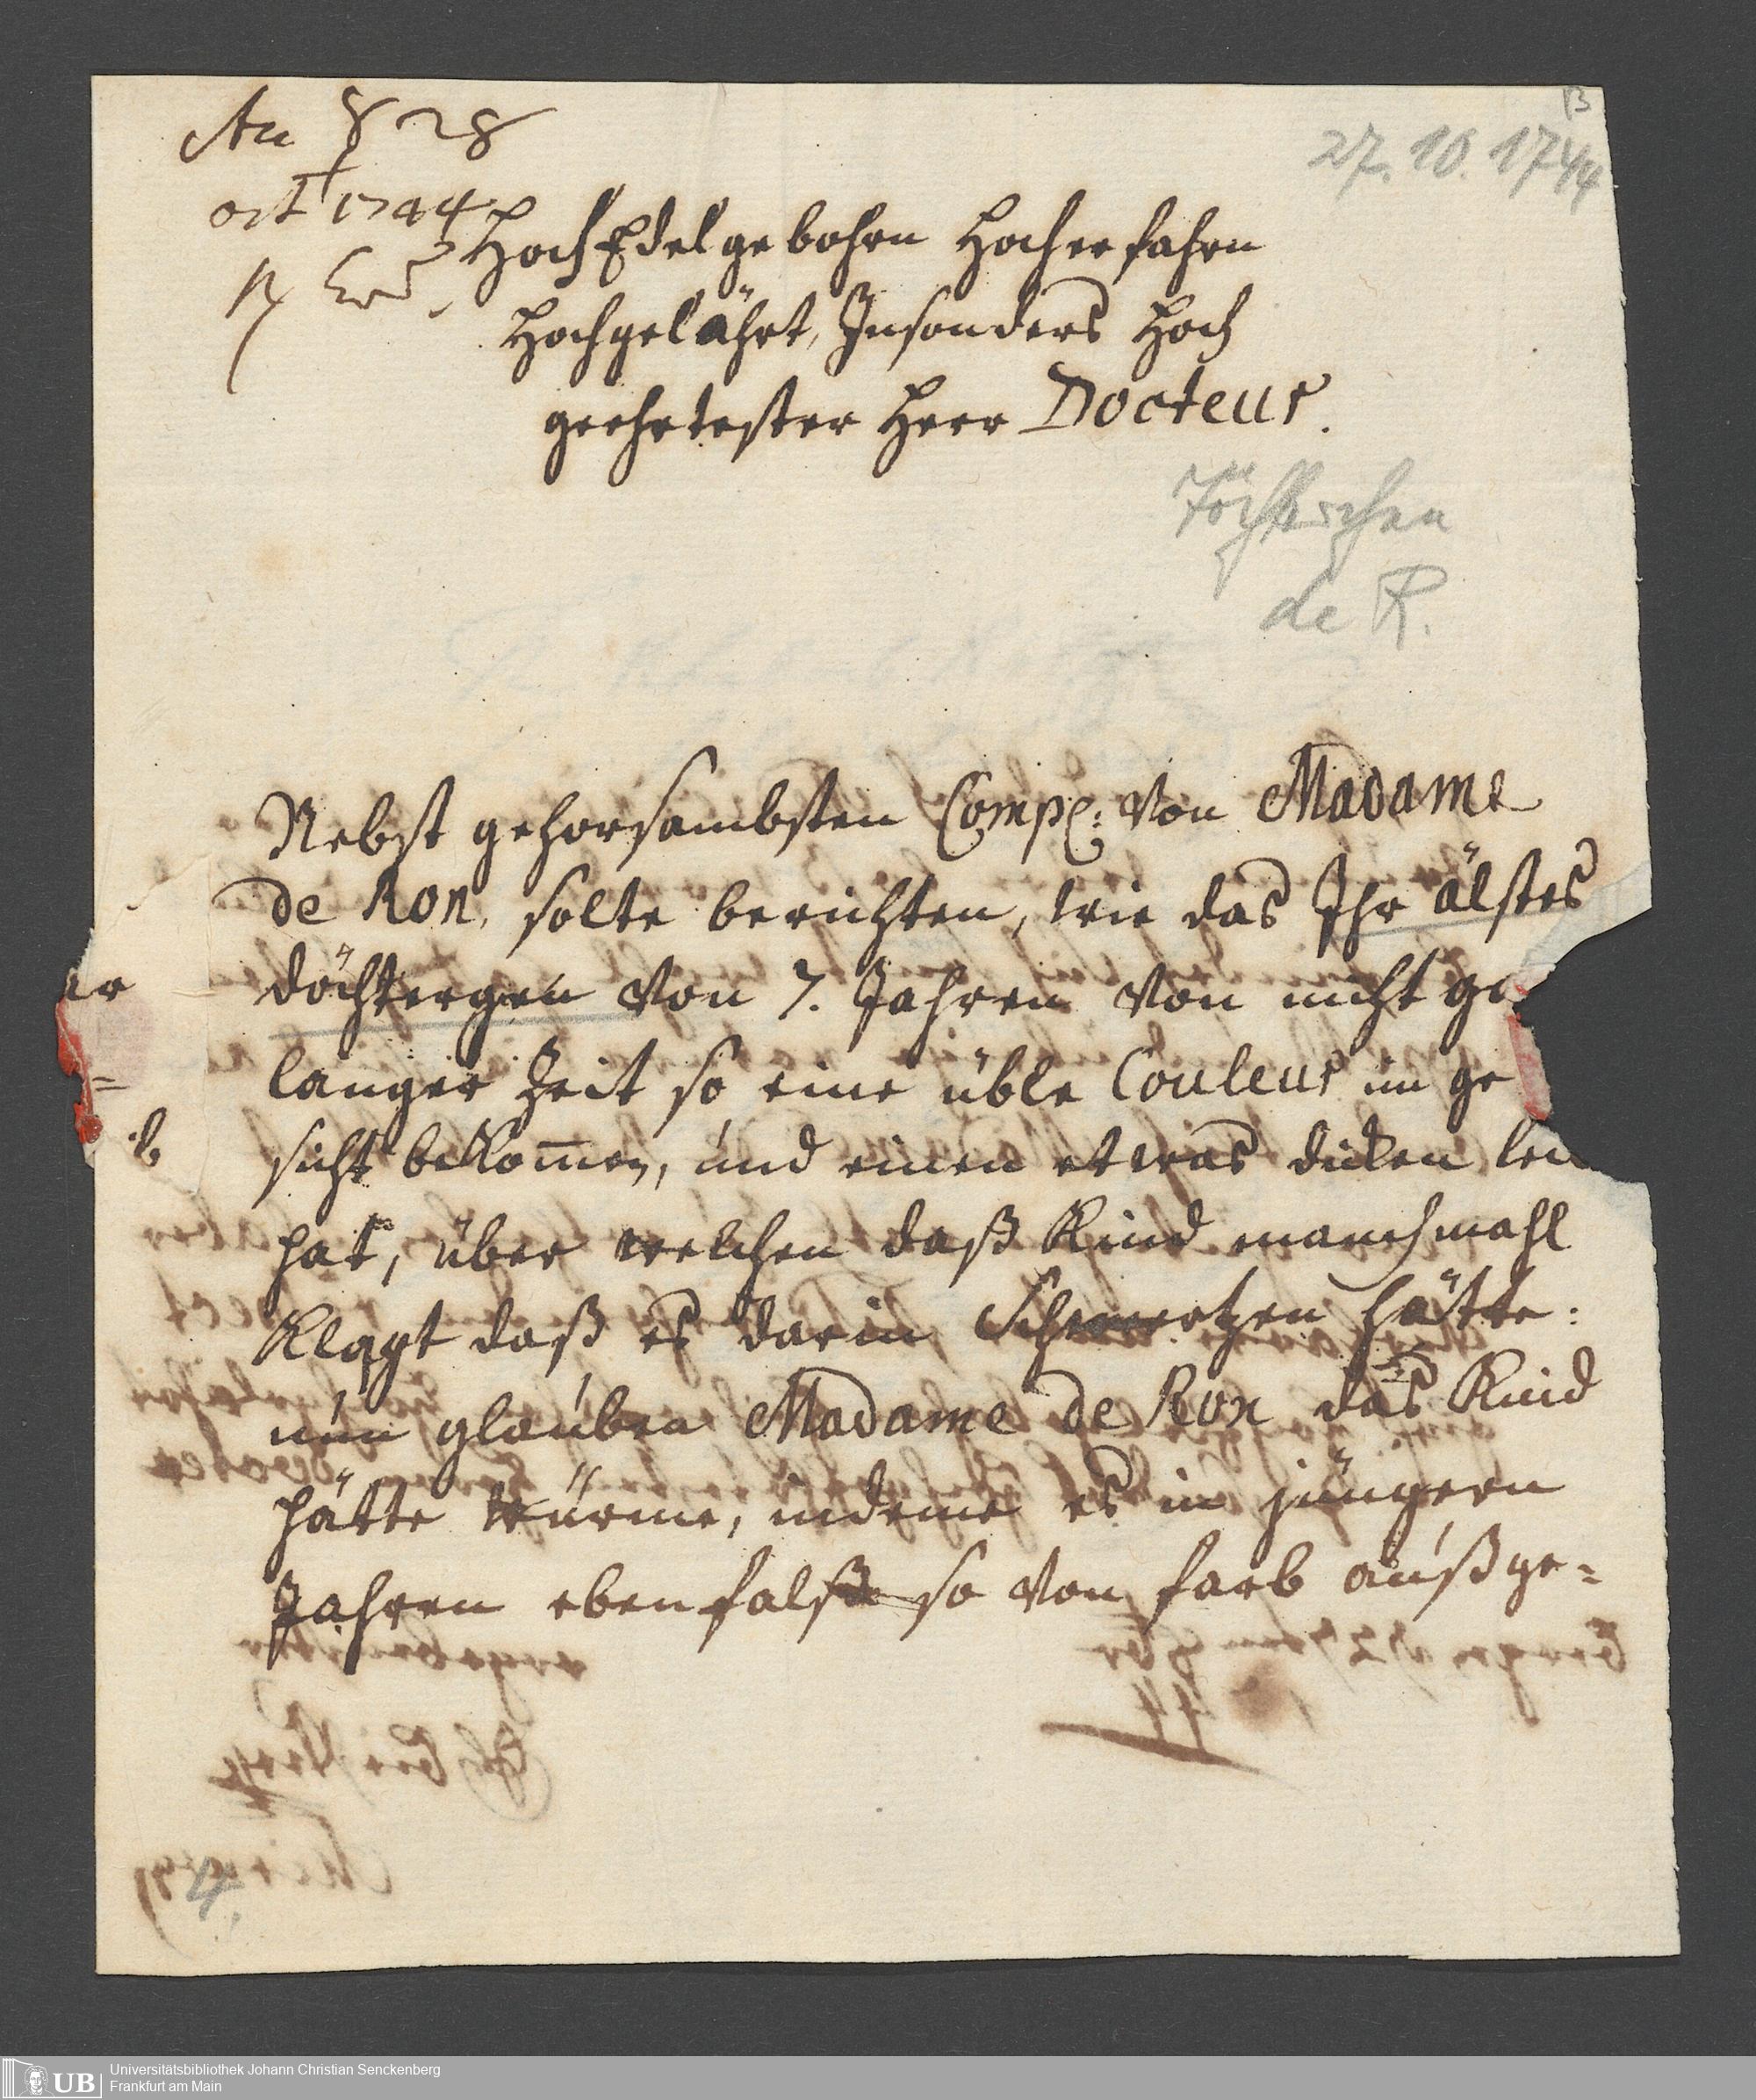 28
oct 1744
27. 10. 1744
HochEdelgebohrn Hocherfahrn
Hochgelährt, Insonders Hoch
geehrtester Herr Docteur.
de R.
Nebst gehorsambsten Compl: von Madame
de Ron, solte berichten, wie das Ihr älstes
döchtergen von 7. Jahren von nicht gar
langer Zeit so eine üble Couleur im ge
sicht bekom̅en, und einen etwas dicken leib
hat, über welchen daß Kind manchmahl
klagt daß es darin Schmertzen hätte:
nun glauben Madame de Ron das Kind
hätte würme, indeme es in jüngern
Jahren ebenfalß so von farb außge=
4.
UB Universitätsbibliothek Johann Christian Senckenberg
Frankfurt am Main